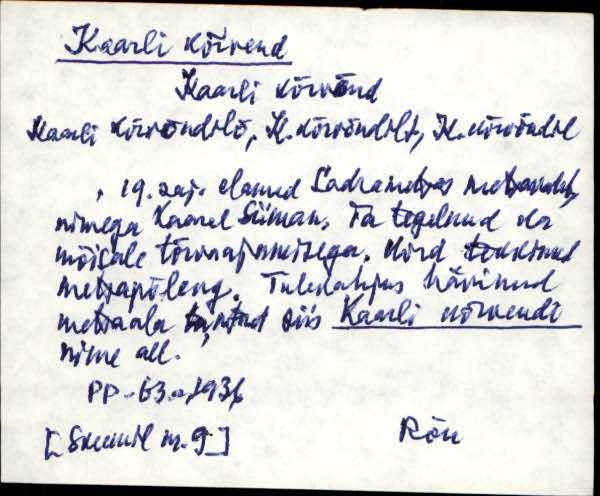 Kaarli kõrvend
Kaarli kõrvõnd
Kaarli kõrvõndilõ, K. kõrvõndilt, K. kõrvõndil
, 19. saj. elanud Sadrametsas metsavaht,
nimega Kaarel Siiman. Ta tegelnud ka
mõisale tõrvaajamisega. Kord tekkinud
metsapõleng. Tulekahjus hävinud
metsaala tuntud siis Kaarli kõrvendi
nime all.
PP - 63.a. 1936
m. 9]
Rõu